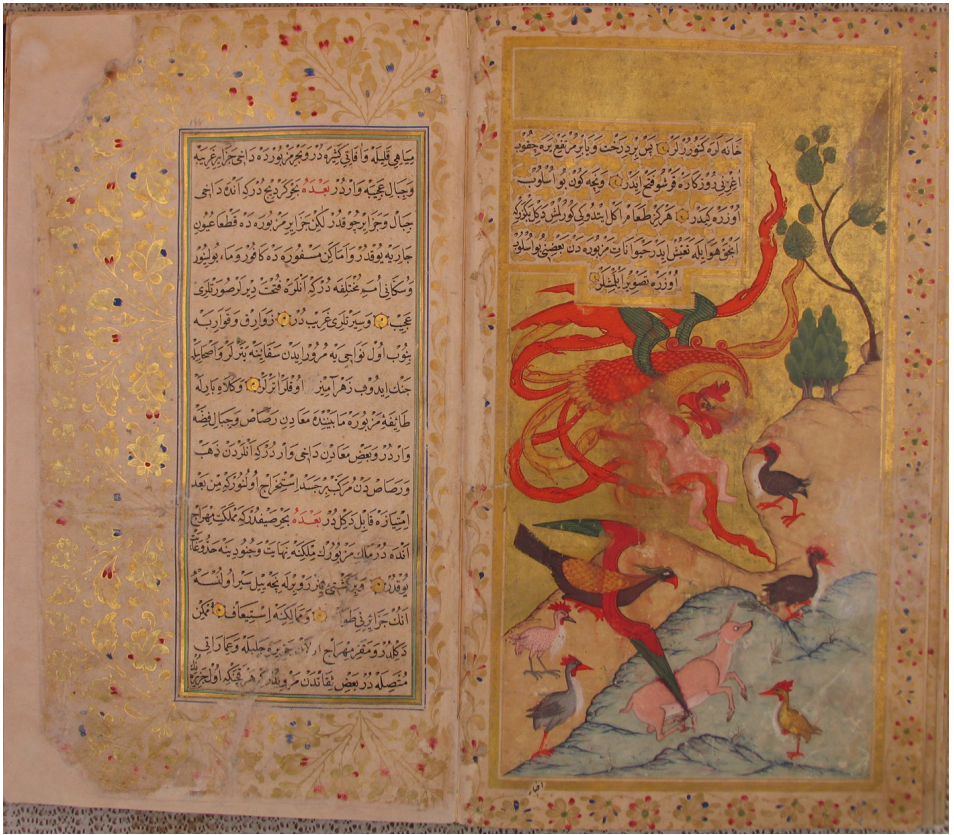 خانه لره كتورر لر پس بر درخت و يا بر مرتفع يره چقوب
اغزنى روزكاره قرشو فتح ايدر و نجه كون بو اسلوب
اوزره كيدر هركز طعام اكل ايتدوكى كورلمش دكلدر كه
انجق هوا ايله تعيش ايدر حيوانات مزبوره دن بعضيسى بو اسلوب
اوزره تصوير ايلمشلر
مياهى قليله و افاتى كثيره در و بحر مزبورده داخى جزاير غريبه
و جبال عجيبه واردر بعده بحر دركه انده داخى
جبال و جزاير چوقدر لكن جزاير مزبوره ده قطعا عيون
جاريه يوقدر و اماكن مسفوره ده كافور و ماء بولنور
و سكانى امم مختلفه دركه انلره ديرلر صورتلرى
عجيب و سيرتلرى غريب در زوارق و قواربه
بنوب اول نواحى يه مرور ايدن سفاينه يترلر و اصحابيله
جنك ايدوب زهر آميز اوقلر اترلر
طايفه مزبوره مابيننده معادن رصاص و جبال فضه
واردر و بعض معادن داخى واردركه انلردن ذهب
و رصاصدن مركب بر جسد استخراج اولنوركه من بعد
امتيازه قابل دكلدر بعده بحر صيفدركه مملكت مهراج
انده در ملك مزبورك ملكنه نهايت و جنودينه حد و غايت
يوقدر نجه ييل سير اولنسه
انك جزايرنى و ممالكنه ممكن
دكلدر و مقر مهراج اولان جزيره جليله و عماراتى
متصله در بعض ثقاتدن مرويدركه اول